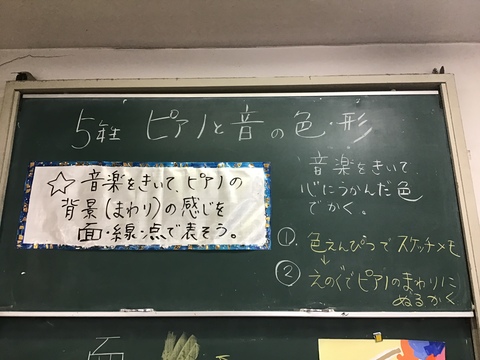 5年生 ピアノと音の色・形
☆音楽をきいて、ピアノの
背景(まわり)の感じを
面・線・点で表そう。
音楽をきいて
心にうかんだ色
でかく。
① 色えんぴつでスケッチメモ
↓
② えのぐでピアノのまわりに
ぬるかく
面